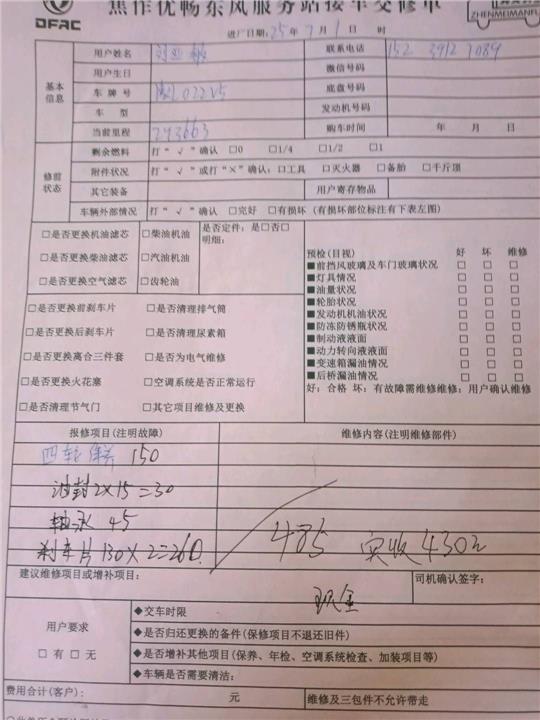 焦作优畅东风服务站接车交修单
DFAC
ZHENMEIMANFU
进厂日期：25年7月1日 时
基本信息
用户姓名 联系电话 152 3912 7089
用户生日 微信号码
车牌号 底盘号码
车型 发动机号码
当前里程 293663 购车时间 年 月 日
修前状态
剩余燃料 打“√”确认 □0 □1/4 □1/2 □1
附件状况 打“√”或打“×”确认：□工具 □灭火器 □备胎 □千斤顶
其它装备 用户寄存物品
车辆外部情况 打“√”确认 □完好 □有损坏（有损坏部位标注有下表左图）
□是否更换机油滤芯 □柴油机油 是否定件：是□否□
明细：
□是否更换柴油滤芯 □汽油机油
□是否更换空气滤芯 □齿轮油
预检（目视） 好 坏 维修
■前挡风玻璃及车门玻璃状况 □ □ □
■灯具情况 □ □ □
■油量状况 □ □ □
■轮胎状况 □ □ □
■发动机机油状况 □ □ □
■防冻防锈瓶状况 □ □ □
■制动液液面 □ □ □
■动力转向液液面 □ □ □
■变速箱漏油情况 □ □ □
■后桥漏油情况 □ □ □
好：合格 坏：有故障需维修维修：用户确认维修
□是否更换前刹车片 □是否清理排气筒
□是否更换后刹车片 □是否清理尿素箱
□是否更换离合三件套 □是否为电气维修
□是否更换火花塞 □空调系统是否正常运行
□是否清理节气门 □其它项目维修及更换
报修项目（注明故障） 维修内容（注明维修部件）
四轮保养 150
油封2×15=30
轴承 45
刹车片130×2=260 485 实收430元
建议维修项目或增补项目： 司机确认签字：
现金
用户要求
□有□无
◆交车时限
◆是否归还更换的备件（保修项目不退还旧件）
◆是否增补其他项目（保养、年检、空调系统检查、加装项目等）
◆车辆是否需要清洁：
费用合计（客户）： 元 维修及三包件不允许带走